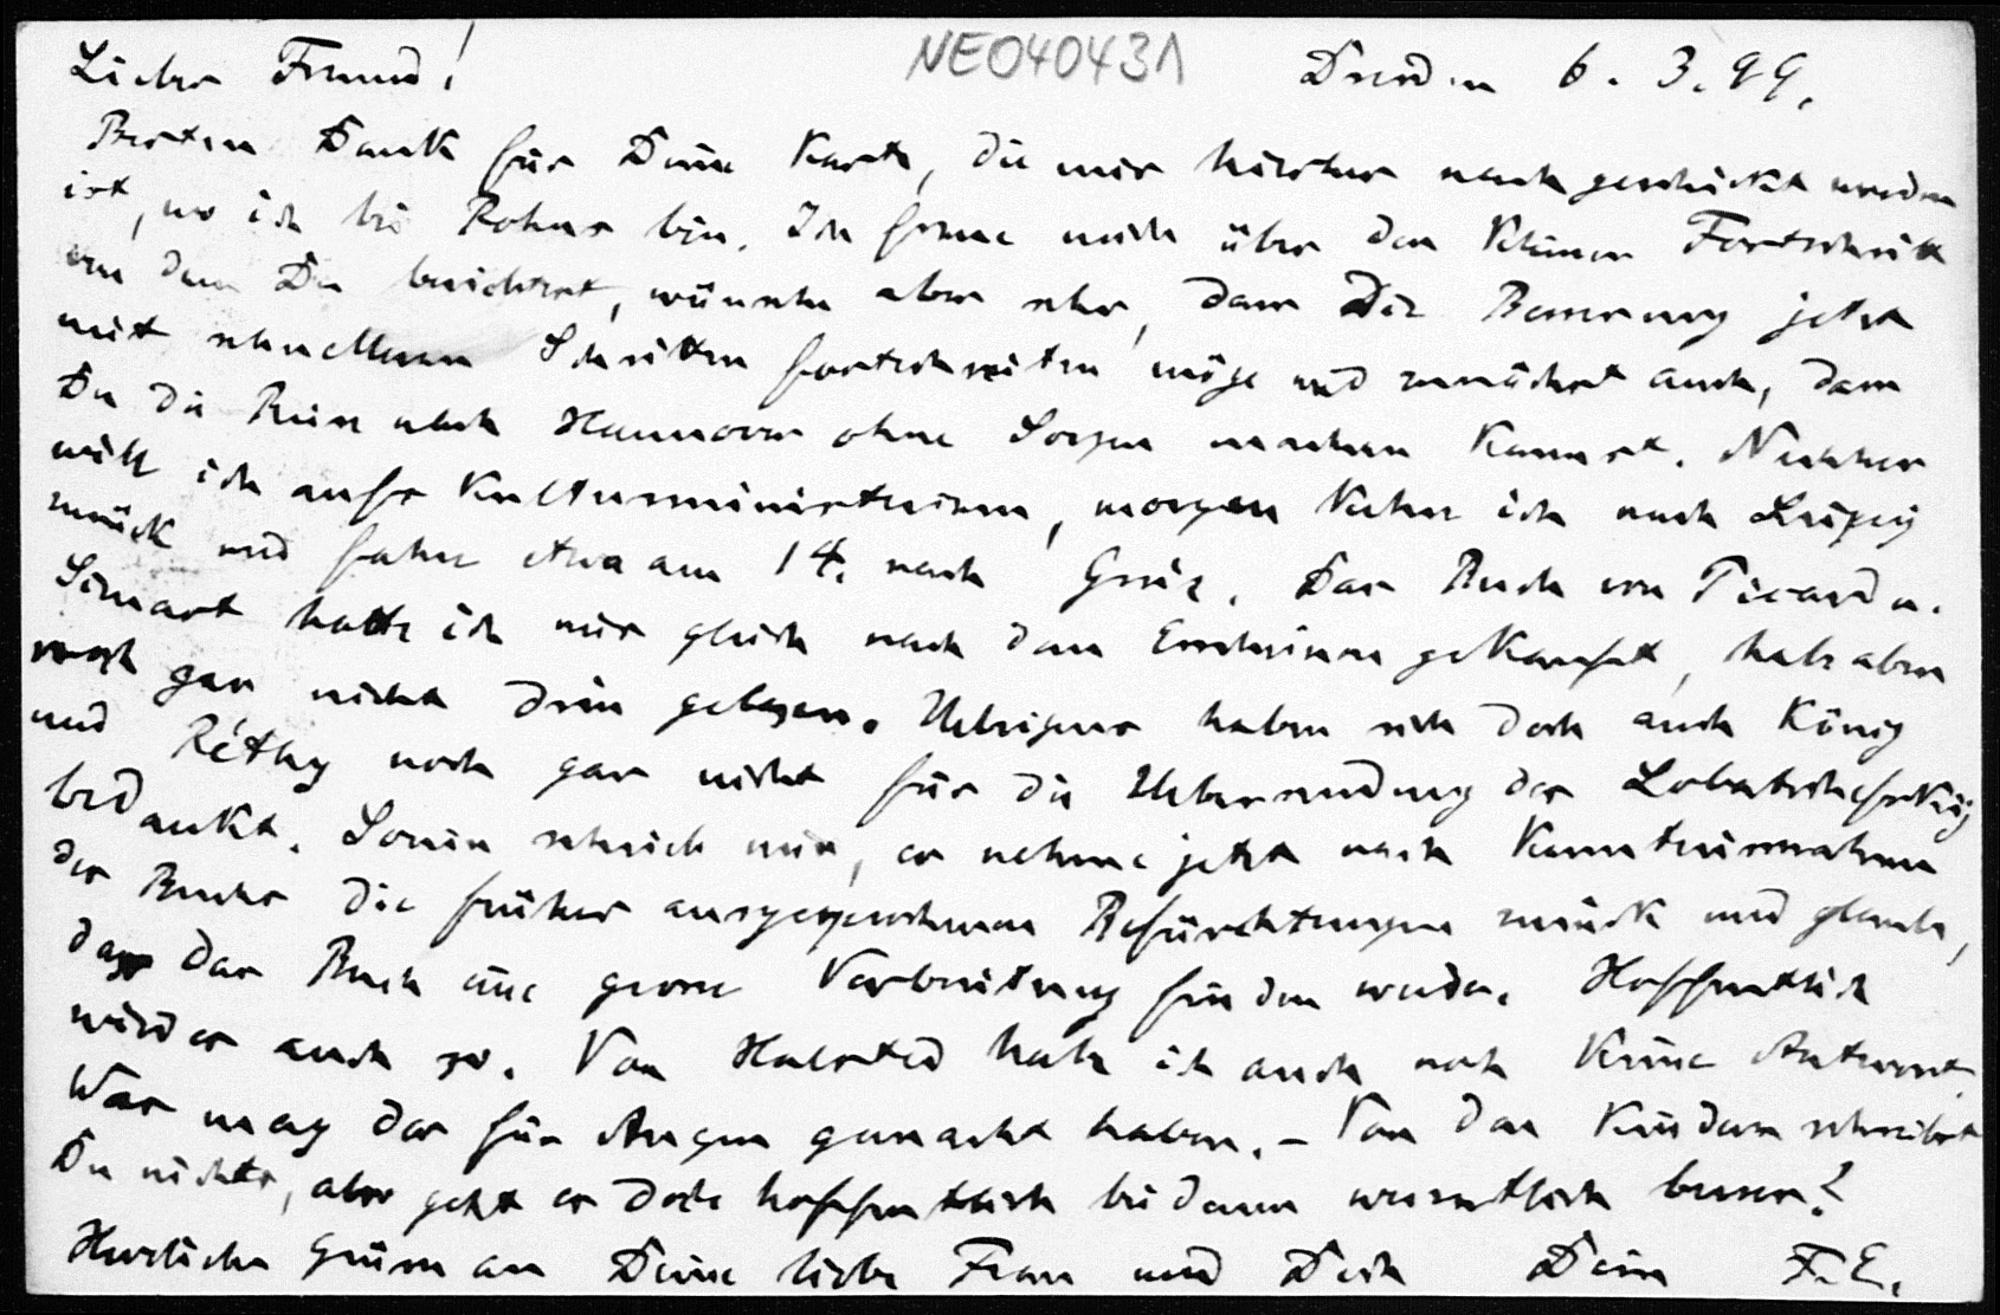 Lieber Freund! NEO40431 Dresden 6. 3. 99.
Besten Dank für Deine Karte, die mir hierher nachgeschickt worden
ist, wo ich bei Rohns bin. Ich freue mich über den kleinen Fortschritt
von dem Du berichtest, wünsche aber sehr, dass Die Besserung jetzt
mit schnelleren Schritten fortschreiten möge und zunächst auch, dass
Du die Reise nach Hannover ohne Sorgen machen kannst. Nachher
will ich aufs Kultusministerium, morgen kehre ich nach Leipzig
zurück und fahre etwa am 14. nach Greiz. Das Buch von Picard u.
Simart hatte ich mir gleich nach dem Erscheinen gekauft, habe aber
noch gar nicht drin gelesen. Uebrigens haben sich doch auch König
und Réthy noch gar nicht für die Uebersendung des Lobatschefskij
bedankt. Sonin schrieb mir, er nehme jetzt nach Kenntnissnahme
des Buches die früher ausgesprochenen Befürchtungen zurück und glaube,
dass das Buch eine grosse Verbreitung finden werde. Hoffentlich
wird es auch so. Von Halsted habe ich auch noch keine Antwort.
Was mag der für Augen gemacht haben. – Von den Kindern schreibst
Du nichts, aber geht es doch hoffentlich bei denen wesentlich besser?
Herzliche Grüsse an Deine liebe Frau und Dich Dein F. E.